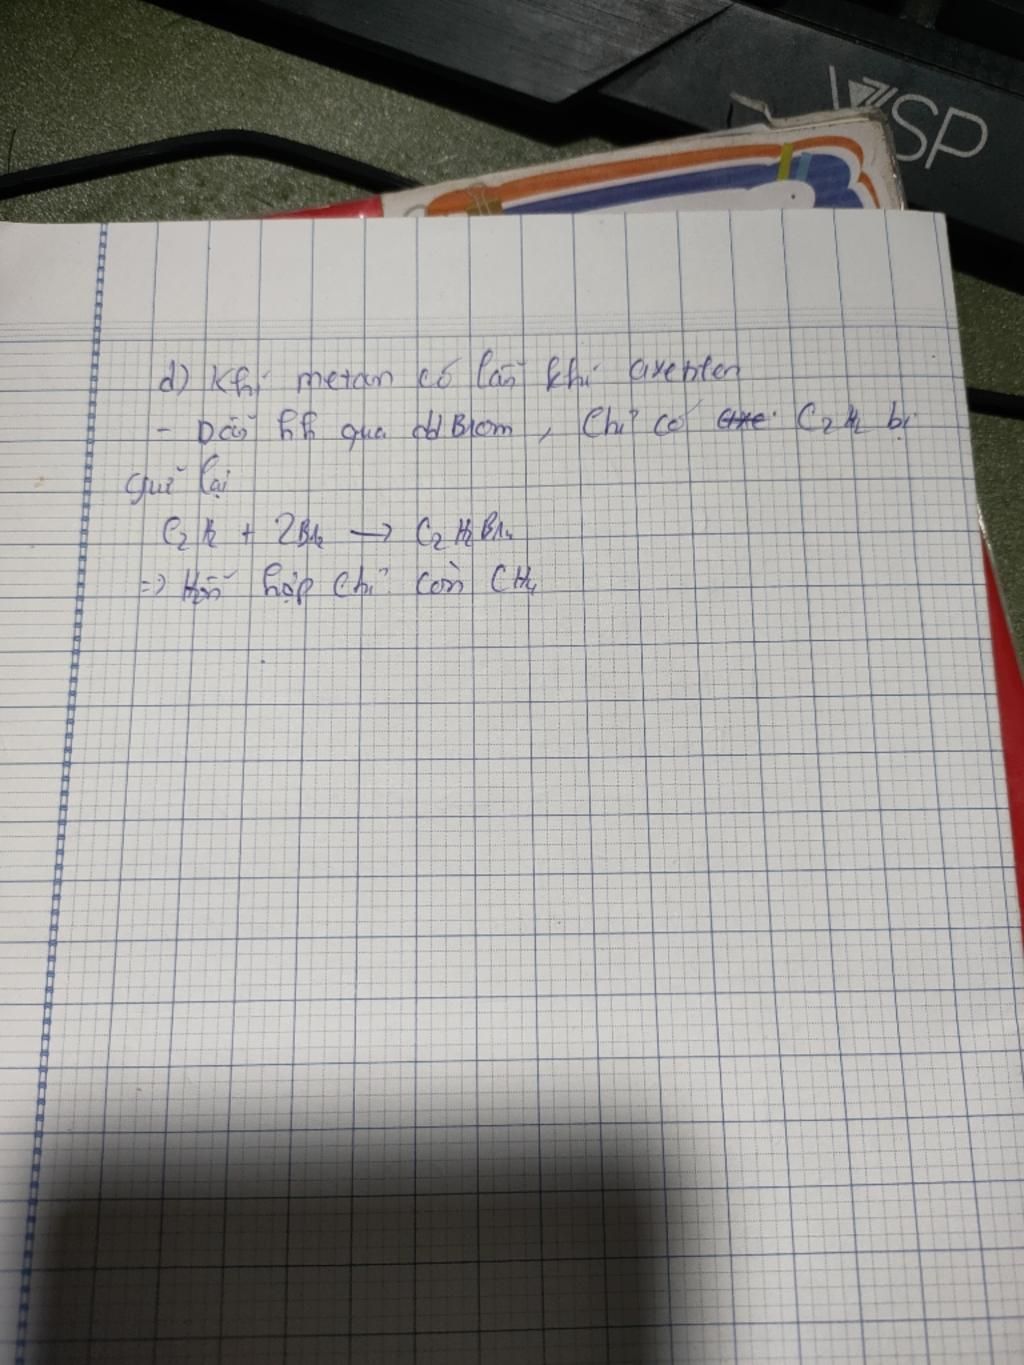 VSP
d) Khí metan có lẫn khí axetilen
- Dẫn hh qua dd Brom, chỉ có C₂H₂ bị
giữ lại
C₂H₂ + 2Br₂ → C₂H₂Br₄
=> Hỗn hợp chỉ còn CH₄